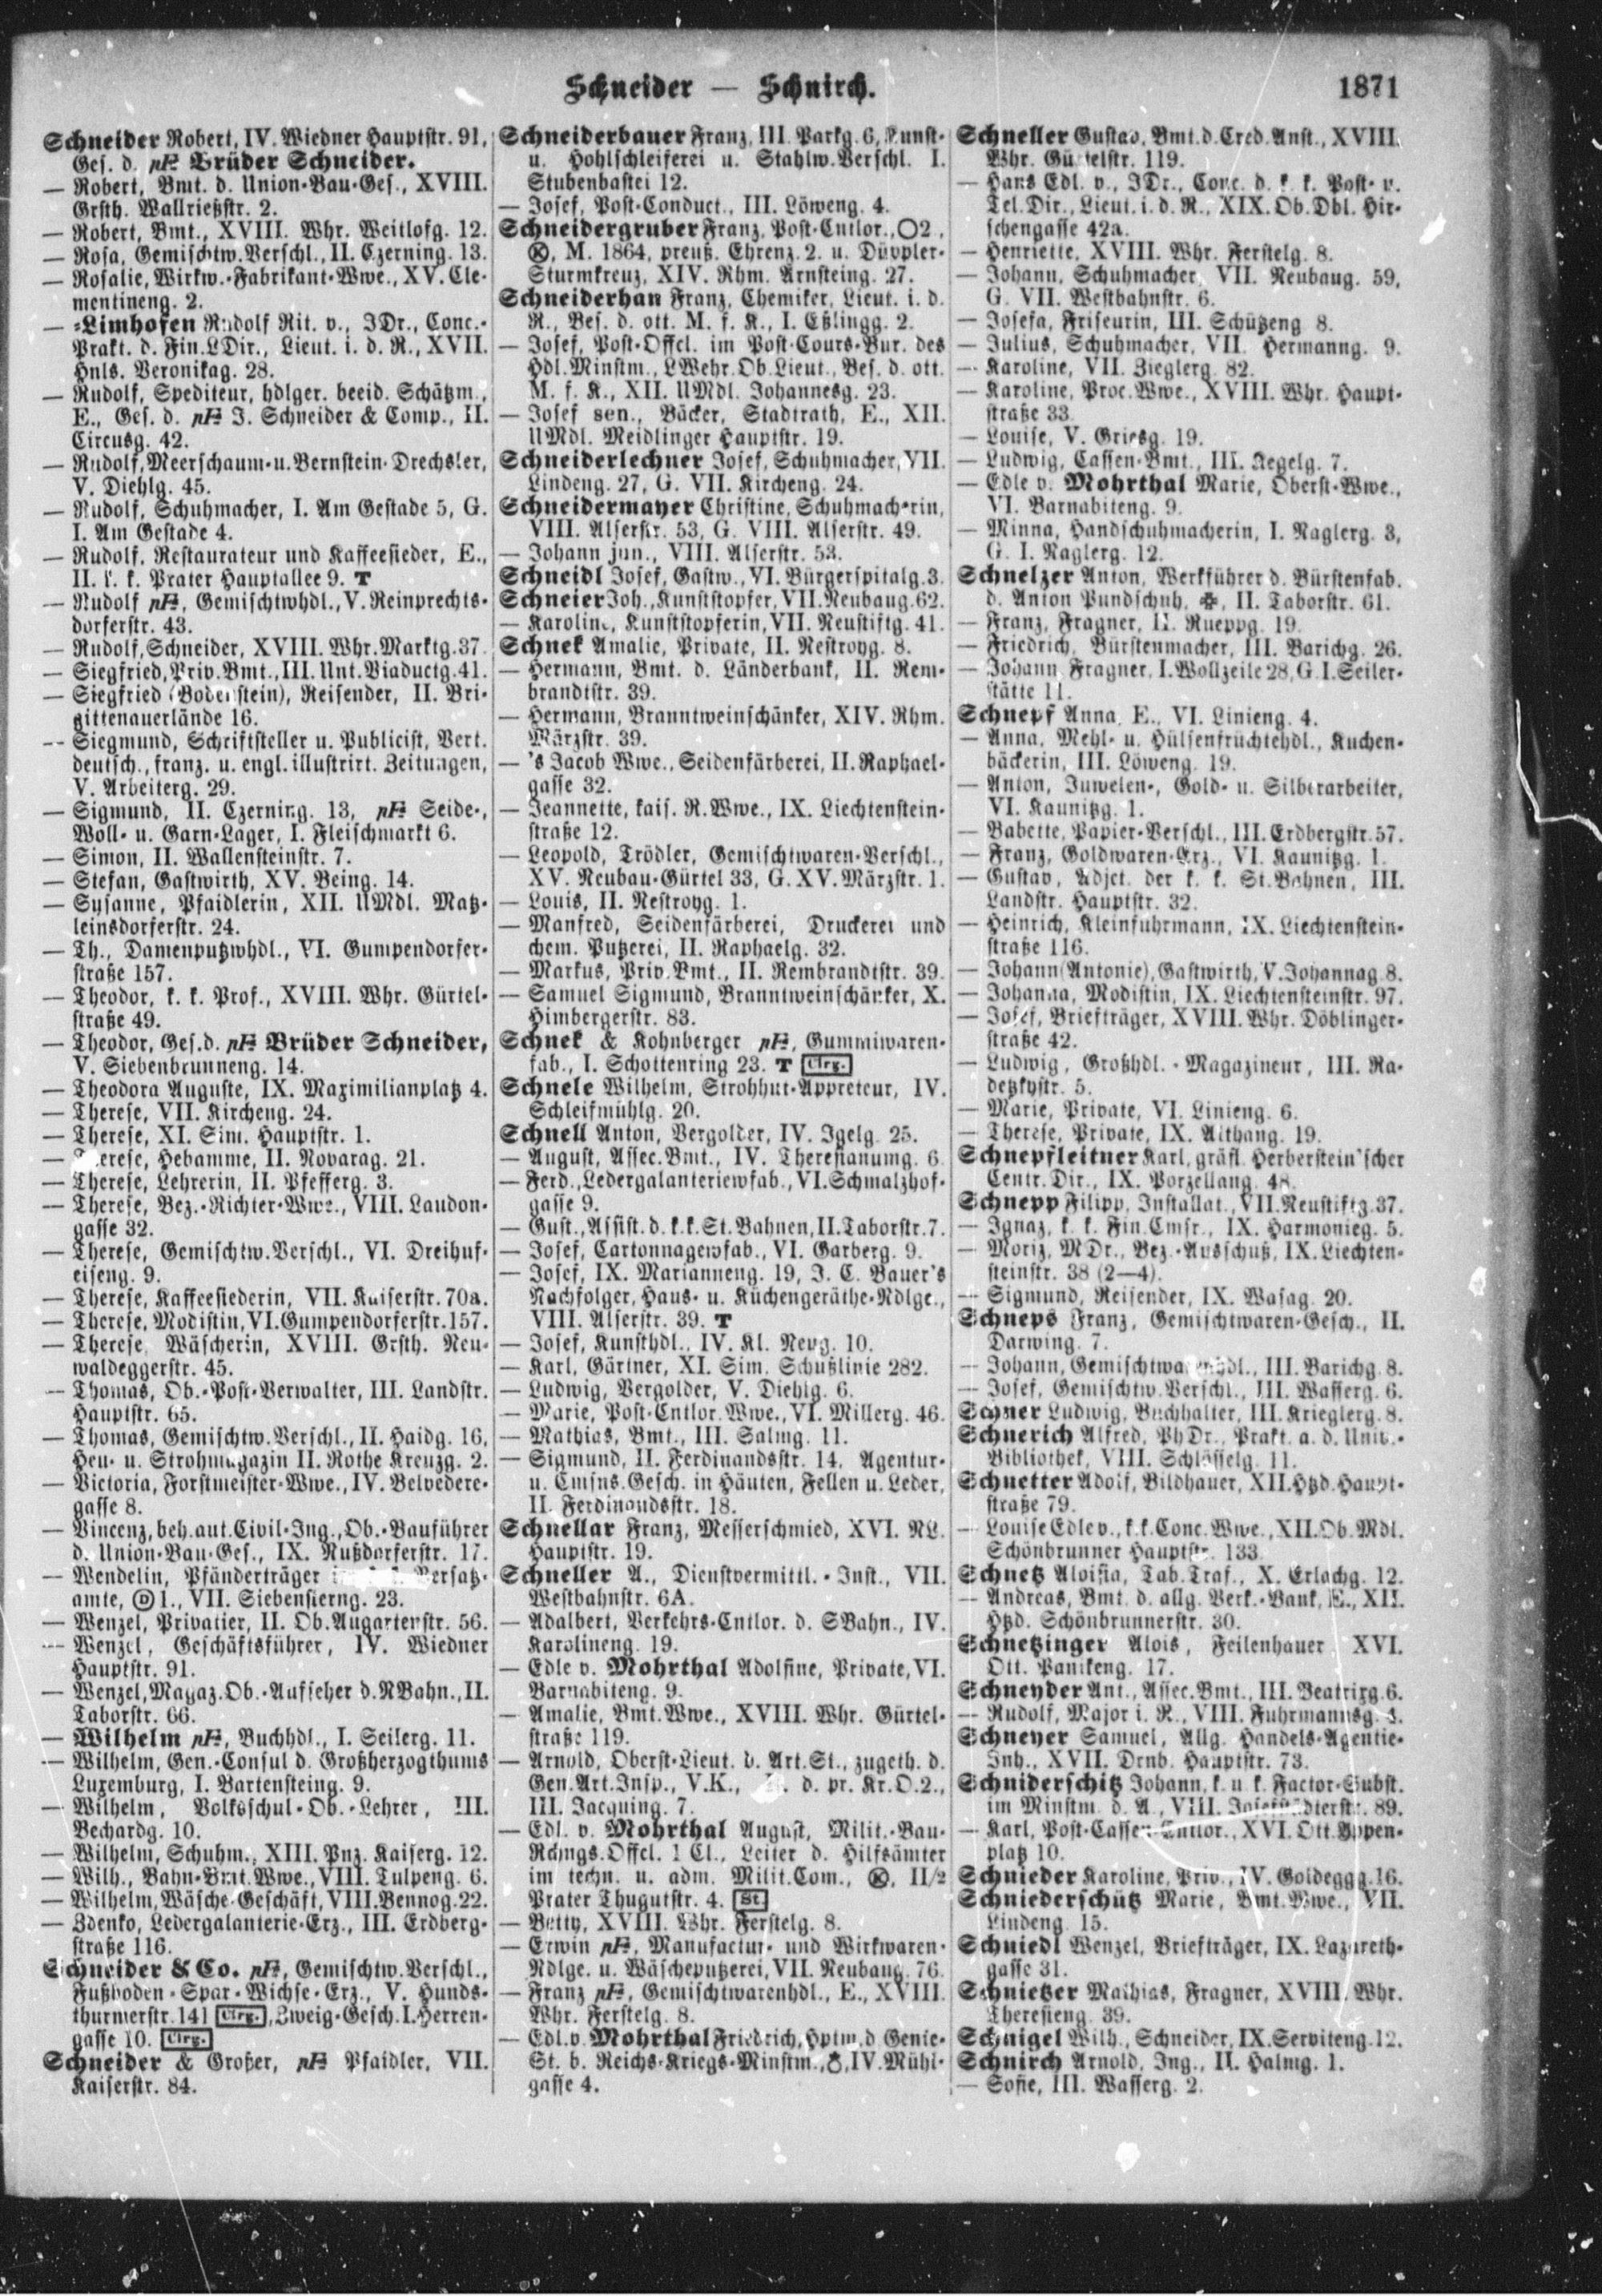 Schneider — Schnirch.
1871
Schneider Robert, IV. Wiedner Hauptstr. 91,
Ges. d. pF Brüder Schneider.
— Robert, Bmt. d. Union-Bau-Ges., XVIII.
Grsth. Wallrießstr. 2.
— Robert, Bmt., XVIII. Whr. Weitlofg. 12.
— Rosa, Gemischtw.Verschl., II. Czerning. 13.
— Rosalie, Wirkw.-Fabrikant-Wwe., XV. Cle-
mentineng. 2.
— -Limhofen Rudolf Rit. v., JDr., Conc.-
Prakt. d. Fin.LDir., Lieut. i. d. R., XVII.
Hnls. Veronikag. 28.
— Rudolf, Spediteur, hdlger. beeid. Schätzm.,
E., Ges. d. pF J. Schneider & Comp., II.
Circusg. 42.
— Rudolf, Meerschaum-u.Bernstein-Drechsler,
V. Diehlg. 45.
— Rudolf, Schuhmacher, I. Am Gestade 5, G.
I. Am Gestade 4.
— Rudolf, Restaurateur und Kaffeesieder, E.,
II. k. k. Prater Hauptallee 9. T
— Rudolf pF, Gemischtwhdl., V. Reinprechts-
dorferstr. 43.
— Rudolf, Schneider, XVIII. Whr.Marktg.37.
— Siegfried, Priv.Bmt., III. Unt.Viaductg.41.
— Siegfried (Bodenstein), Reisender, II. Bri-
gittenauerlände 16.
— Siegmund, Schriftsteller u. Publicist, Vert.
deutsch., franz. u. engl. illustrirt. Zeitungen,
V. Arbeiterg. 29.
— Sigmund, II. Czerning. 13, pF Seide-,
Woll- u. Garn-Lager, I. Fleischmarkt 6.
— Simon, II. Wallensteinstr. 7.
— Stefan, Gastwirth, XV. Being. 14.
— Susanne, Pfaidlerin, XII. UMdl. Matz-
leinsdorferstr. 24.
— Th., Damenputzwhdl., VI. Gumpendorfer-
straße 157.
— Theodor, k. k. Prof., XVIII. Whr. Gürtel-
straße 49.
— Theodor, Ges.d. pF Brüder Schneider,
V. Siebenbrunneng. 14.
— Theodora Auguste, IX. Maximilianplatz 4.
— Therese, VII. Kircheng. 24.
— Therese, XI. Sim. Hauptstr. 1.
— Therese, Hebamme, II. Novarag. 21.
— Therese, Lehrerin, II. Pfefferg. 3.
— Therese, Bez.-Richter-Wwe., VIII. Laudon-
gasse 32.
— Therese, Gemischtw.Verschl., VI. Dreihuf-
eiseng. 9.
— Therese, Kaffeesiederin, VII. Kaiserstr. 70a.
— Therese, Modistin, VI.Gumpendorferstr.157.
— Therese, Wäscherin, XVIII. Grsth. Neu-
waldeggerstr. 45.
— Thomas, Ob.-Post-Verwalter, III. Landstr.
Hauptstr. 65.
— Thomas, Gemischtw.Verschl., II. Haidg. 16,
Heu- u. Strohmagazin II. Rothe Kreuzg. 2.
— Victoria, Forstmeister-Wwe., IV. Belvedere-
gasse 8.
— Vincenz, beh.aut.Civil-Ing., Ob.-Bauführer
d. Union-Bau-Ges., IX. Nußdorferstr. 17.
— Wendelin, Pfänderträger Versatz-
amte, Ⓓ 1., VII. Siebensterng. 23.
— Wenzel, Privatier, II. Ob.Augartenstr. 56.
— Wenzel, Geschäftsführer, IV. Wiedner
Hauptstr. 91.
— Wenzel, Magaz.Ob.-Aufseher d.NBahn., II.
Taborstr. 66.
— Wilhelm pF, Buchhdl., I. Seilerg. 11.
— Wilhelm, Gen.-Consul d. Großherzogthums
Luxemburg, I. Bartensteing. 9.
— Wilhelm, Volksschul-Ob.-Lehrer, III.
Bechardg. 10.
— Wilhelm, Schuhm., XIII. Pnz. Kaiserg. 12.
— Wilh., Bahn-Bmt.Wwe., VIII. Tulpeng. 6.
— Wilhelm, Wäsche-Geschäft, VIII.Bennog.22.
— Zdenko, Ledergalanterie-Erz., III. Erdberg-
straße 116.
Schneider & Co. pF, Gemischtw.Verschl.,
Fußboden-Spar-Wichse-Erz., V. Hunds-
thurmerstr. 141 Clrg., Zweig-Gesch. I.Herren-
gasse 10. Clrg.
Schneider & Großer, pF Pfaidler, VII.
Kaiserstr. 84.
Schneiderbauer Franz, III. Parkg. 6, Kunst-
u. Hohlschleiferei u. Stahlw.Verschl. I.
Stubenbastei 12.
— Josef, Post-Conduct., III. Löweng. 4.
Schneidergruber Franz, Post-Cntlor., ◯2,
ⓧ, M. 1864, preuß. Ehrenz. 2. u. Düppler-
Sturmkreuz, XIV. Rhm. Arnsteing. 27.
Schneiderhan Franz, Chemiker, Lieut. i. d.
R., Bes. d. ott. M. f. K., I. Eßlingg. 2.
— Josef, Post-Offcl. im Post-Cours-Bur. des
Hdl.Minstm., LWehr.Ob.Lieut., Bes. d. ott.
M. f. K., XII. UMdl. Johannesg. 23.
— Josef sen., Bäcker, Stadtrath, E., XII.
UMdl. Meidlinger Hauptstr. 19.
Schneiderlechner Josef, Schuhmacher, VII.
Lindeng. 27, G. VII. Kircheng. 24.
Schneidermayer Christine, Schuhmacherin,
VIII. Alserstr. 53, G. VIII. Alserstr. 49.
— Johann jun., VIII. Alserstr. 53.
Schneidl Josef, Gastw., VI. Bürgerspitalg.3.
Schneier Joh., Kunststopfer, VII.Neubaug.62.
— Karoline, Kunststopferin, VII. Neustiftg. 41.
Schnek Amalie, Private, II. Nestroyg. 8.
— Hermann, Bmt. d. Länderbank, II. Rem-
brandtstr. 39.
— Hermann, Branntweinschänker, XIV. Rhm.
Märzstr. 39.
— 's Jacob Wwe., Seidenfärberei, II. Raphael-
gasse 32.
— Jeannette, kais. R.Wwe., IX. Liechtenstein-
straße 12.
— Leopold, Trödler, Gemischtwaren-Verschl.,
XV. Neubau-Gürtel 33, G. XV. Märzstr. 1.
— Louis, II. Nestroyg. 1.
— Manfred, Seidenfärberei, Druckerei und
chem. Putzerei, II. Raphaelg. 32.
— Markus, Priv.Bmt., II. Rembrandtstr. 39.
— Samuel Sigmund, Branntweinschänker, X.
Himbergerstr. 83.
Schnek & Kohnberger pF, Gummiwaren-
fab., I. Schottenring 23. T Clrg.
Schnele Wilhelm, Strohhut-Appreteur, IV.
Schleifmühlg. 20.
Schnell Anton, Vergolder, IV. Igelg. 25.
— August, Assec.Bmt., IV. Theresianumg. 6.
— Ferd., Ledergalanteriewfab., VI.Schmalzhof-
gasse 9.
— Gust., Assist. d. k.k.St.Bahnen, II.Taborstr.7.
— Josef, Cartonnagewfab., VI. Garberg. 9.
— Josef, IX. Marianneng. 19, J. C. Bauer's
Nachfolger, Haus- u. Küchengeräthe-Ndlge.,
VIII. Alserstr. 39. T
— Josef, Kunsthdl., IV. Kl. Neug. 10.
— Karl, Gärtner, XI. Sim. Schußlinie 282.
— Ludwig, Vergolder, V. Diehlg. 6.
— Marie, Post-Cntlor.Wwe., VI. Millerg. 46.
— Mathias, Bmt., III. Salmg. 11.
— Sigmund, II. Ferdinandsstr. 14, Agentur-
u. Cmsns.Gesch. in Häuten, Fellen u. Leder,
II. Ferdinandsstr. 18.
Schnellar Franz, Messerschmied, XVI. NL.
Hauptstr. 19.
Schneller A., Dienstvermittl.-Inst., VII.
Westbahnstr. 6A.
— Adalbert, Verkehrs-Cntlor. d. SBahn., IV.
Karolineng. 19.
— Edle v. Mohrthal Adolfine, Private, VI.
Barnabiteng. 9.
— Amalie, Bmt.Wwe., XVIII. Whr. Gürtel-
straße 119.
— Arnold, Oberst-Lieut. d. Art.St., zugeth. d.
Gen.Art.Insp., V.K., d. pr. Kr.O.2.,
III. Jacquing. 7.
— Edl. v. Mohrthal August, Milit.-Bau-
Rchngs.Offcl. 1 Cl., Leiter d. Hilfsämter
im techn. u. adm. Milit.Com., ⓧ, II/2
Prater Thugutstr. 4. St.
— Betty, XVIII. Whr. Ferstelg. 8.
— Erwin pF, Manufactur- und Wirkwaren-
Ndlge. u. Wäscheputzerei, VII. Neubaug. 76.
— Franz pF, Gemischtwarenhdl., E., XVIII.
Whr. Ferstelg. 8.
— Edl.v. Mohrthal Friedrich, Hptm.d Genie-
St. b. Reichs-Kriegs-Minstm., IV.Mühl-
gasse 4.
Schneller Gustav, Bmt.d.Cred.Anst., XVIII.
Whr. Gürtelstr. 119.
— Hans Edl. v., JDr., Conc. d. k. k. Post- u.
Tel.Dir., Lieut. i. d. R., XIX. Ob.Dbl. Hir-
schengasse 42a.
— Henriette, XVIII. Whr. Ferstelg. 8.
— Johann, Schuhmacher, VII. Neubaug. 59,
G. VII. Westbahnstr. 6.
— Josefa, Friseurin, III. Schützeng 8.
— Julius, Schuhmacher, VII. Hermanng. 9.
— Karoline, VII. Zieglerg. 82.
— Karoline, Proc.Wwe., XVIII. Whr. Haupt-
straße 33.
— Louise, V. Griesg. 19.
— Ludwig, Cassen-Bmt., III. Kegelg. 7.
— Edle v. Mohrthal Marie, Oberst-Wwe.,
VI. Barnabiteng. 9.
— Minna, Handschuhmacherin, I. Naglerg. 3,
G. I. Naglerg. 12.
Schnelzer Anton, Werkführer d. Bürstenfab.
d. Anton Pundschuh, ✠, II. Taborstr. 61.
— Franz, Fragner, II. Rueppg. 19.
— Friedrich, Bürstenmacher, III. Barichg. 26.
— Johann, Fragner, I.Wollzeile 28, G.I.Seiler-
stätte 11.
Schnepf Anna, E., VI. Linieng. 4.
— Anna, Mehl- u. Hülsenfrüchtehdl., Kuchen-
bäckerin, III. Löweng. 19.
— Anton, Juwelen-, Gold- u. Silberarbeiter,
VI. Kaunitzg. 1.
— Babette, Papier-Verschl., III. Erdbergstr.57.
— Franz, Goldwaren-Erz., VI. Kaunitzg. 1.
— Gustav, Adjct. der k. k. St.Bahnen, III.
Landstr. Hauptstr. 32.
— Heinrich, Kleinfuhrmann, IX. Liechtenstein-
straße 116.
— Johann (Antonie), Gastwirth, V.Johannag.8.
— Johanna, Modistin, IX. Liechtensteinstr. 97.
— Josef, Briefträger, XVIII. Whr. Döblinger-
straße 42.
— Ludwig, Großhdl.-Magazineur, III. Ra-
detzkystr. 5.
— Marie, Private, VI. Linieng. 6.
— Therese, Private, IX. Althang. 19.
Schnepfleitner Karl, gräfl. Herberstein'scher
Centr.Dir., IX. Porzellang. 48.
Schnepp Filipp, Installat., VII.Neustiftg.37.
— Ignaz, k. k. Fin.Cmsr., IX. Harmonieg. 5.
— Moriz, MDr., Bez.-Ausschuß, IX. Liechten-
steinstr. 38 (2—4).
— Sigmund, Reisender, IX. Wasag. 20.
Schneps Franz, Gemischtwaren-Gesch., II.
Darwing. 7.
— Johann, Gemischtwarenhdl., III. Barichg. 8.
— Josef, Gemischtw.Verschl., III. Wasserg. 6.
Schner Ludwig, Buchhalter, III. Krieglerg. 8.
Schnerich Alfred, PhDr., Prakt. a. d. Univ.-
Bibliothek, VIII. Schlösselg. 11.
Schnetter Adolf, Bildhauer, XII.Htzd.Haupt-
straße 79.
— Louise Edle v., k.k.Conc.Wwe., XII.Ob.Mdl.
Schönbrunner Hauptstr. 133.
Schnetz Aloisia, Tab.Traf., X. Erlachg. 12.
— Andreas, Bmt. d. allg. Verk.-Bank, E., XII.
Htzd. Schönbrunnerstr. 30.
Schnetzinger Alois, Feilenhauer, XVI.
Ott. Panikeng. 17.
Schneyder Ant., Assec.Bmt., III. Beatrixg.6.
— Rudolf, Major i. R., VIII. Fuhrmannsg.
Schneyer Samuel, Allg. Handels-Agentie-
Inh., XVII. Drnb. Hauptstr. 73.
Schniderschitz Johann, k. u. k. Factor-Subst.
im Minstm. d. A., VIII. Josefstädterstr. 89.
— Karl, Post-Cassen-Cntlor., XVI. Ott. Yppen-
platz 10.
Schnieder Karoline, Priv., IV. Goldeggg.16.
Schniederschütz Marie, Bmt.Wwe., VII.
Lindeng. 15.
Schniedl Wenzel, Briefträger, IX. Lazareth-
gasse 31.
Schnietzer Mathias, Fragner, XVIII. Whr.
Theresieng. 39.
Schnigel Wilh., Schneider, IX.Serviteng.12.
Schnirch Arnold, Ing., II. Halmg. 1.
— Sofie, III. Wasserg. 2.